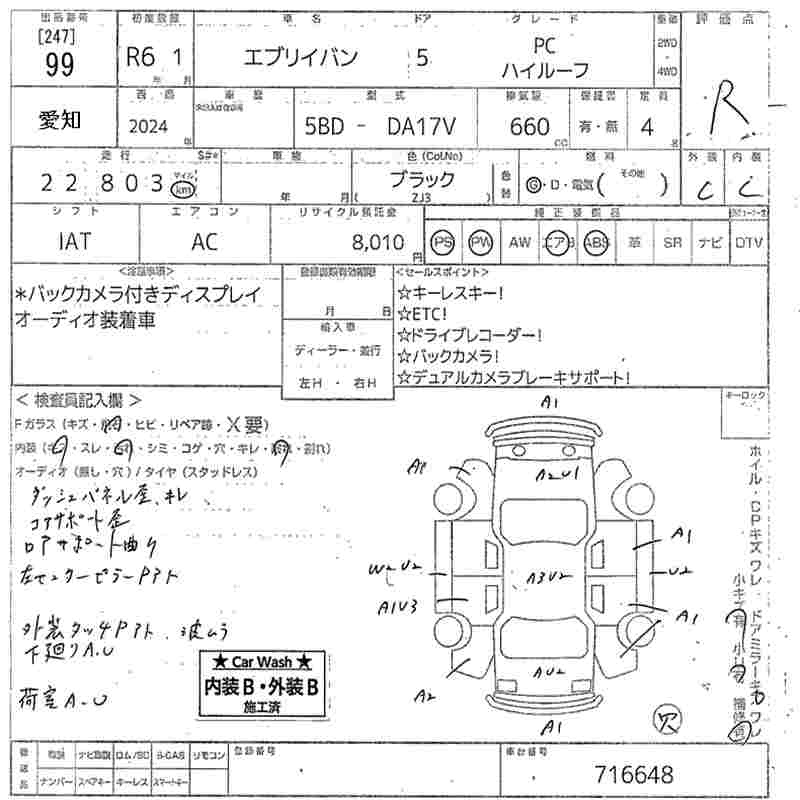 出品番号 初度登録 車名 ドア グレード 車歴 評価点
[247] 99
R6 1 年 月
エブリイバン 5 PC ハイルーフ
2WD ・ 4WD
R
愛知
2024 年
型式 排気量 保証書 定員
5BD - DA17V 660 CC 有・無 4 名
走行 車検 色 (Col.No) 燃料 その他 外装 内装
22803 マイル km
年 月
ブラック
( ZJ3 )
色替
G・D・電気( )
C C
シフト エアコン リサイクル預託金 純正装備品
IAT AC 8,010 円
PS PW AW エアB ABS 革 SR ナビ DTV
<注意事項>
*バックカメラ付きディスプレイ
オーディオ装着車
登録書類有効期限
月 日
輸入車
ディーラー・並行
左H ・ 右H
<セールスポイント>
☆キーレスキー!
☆ETC!
☆ドライブレコーダー!
☆バックカメラ!
☆デュアルカメラブレーキサポート!
<検査員記入欄>
キーロック
Fガラス (キズ・凹・ヒビ・リペア跡・X要)
内装 (キズ・スレ・汚れ・シミ・コゲ・穴・キレ・割れ)
オーディオ (無し・穴) / タイヤ (スタッドレス)
ダッシュパネル歪、キレ
コアサポート歪
ロアサポート曲り
左センターピラーPアト
外装タッチPアト、波ムラ
下廻りA.U
荷室A.U
★ Car Wash ★
内装B・外装B
施工済
A1
AP
A2U1
A1
W2 U2
A3U2
U2
A1U3
A1
AU2
A2
A1
穴
ホイル・CPキズワレ・ドアミラーキズワレ
小キズ有 小U有 補修有
確認品
取説 ナビ取説 ロム/SD B-CAS リモコン
ナンバー スペアキー キーレス スマートキー
登録番号
車台番号
716648